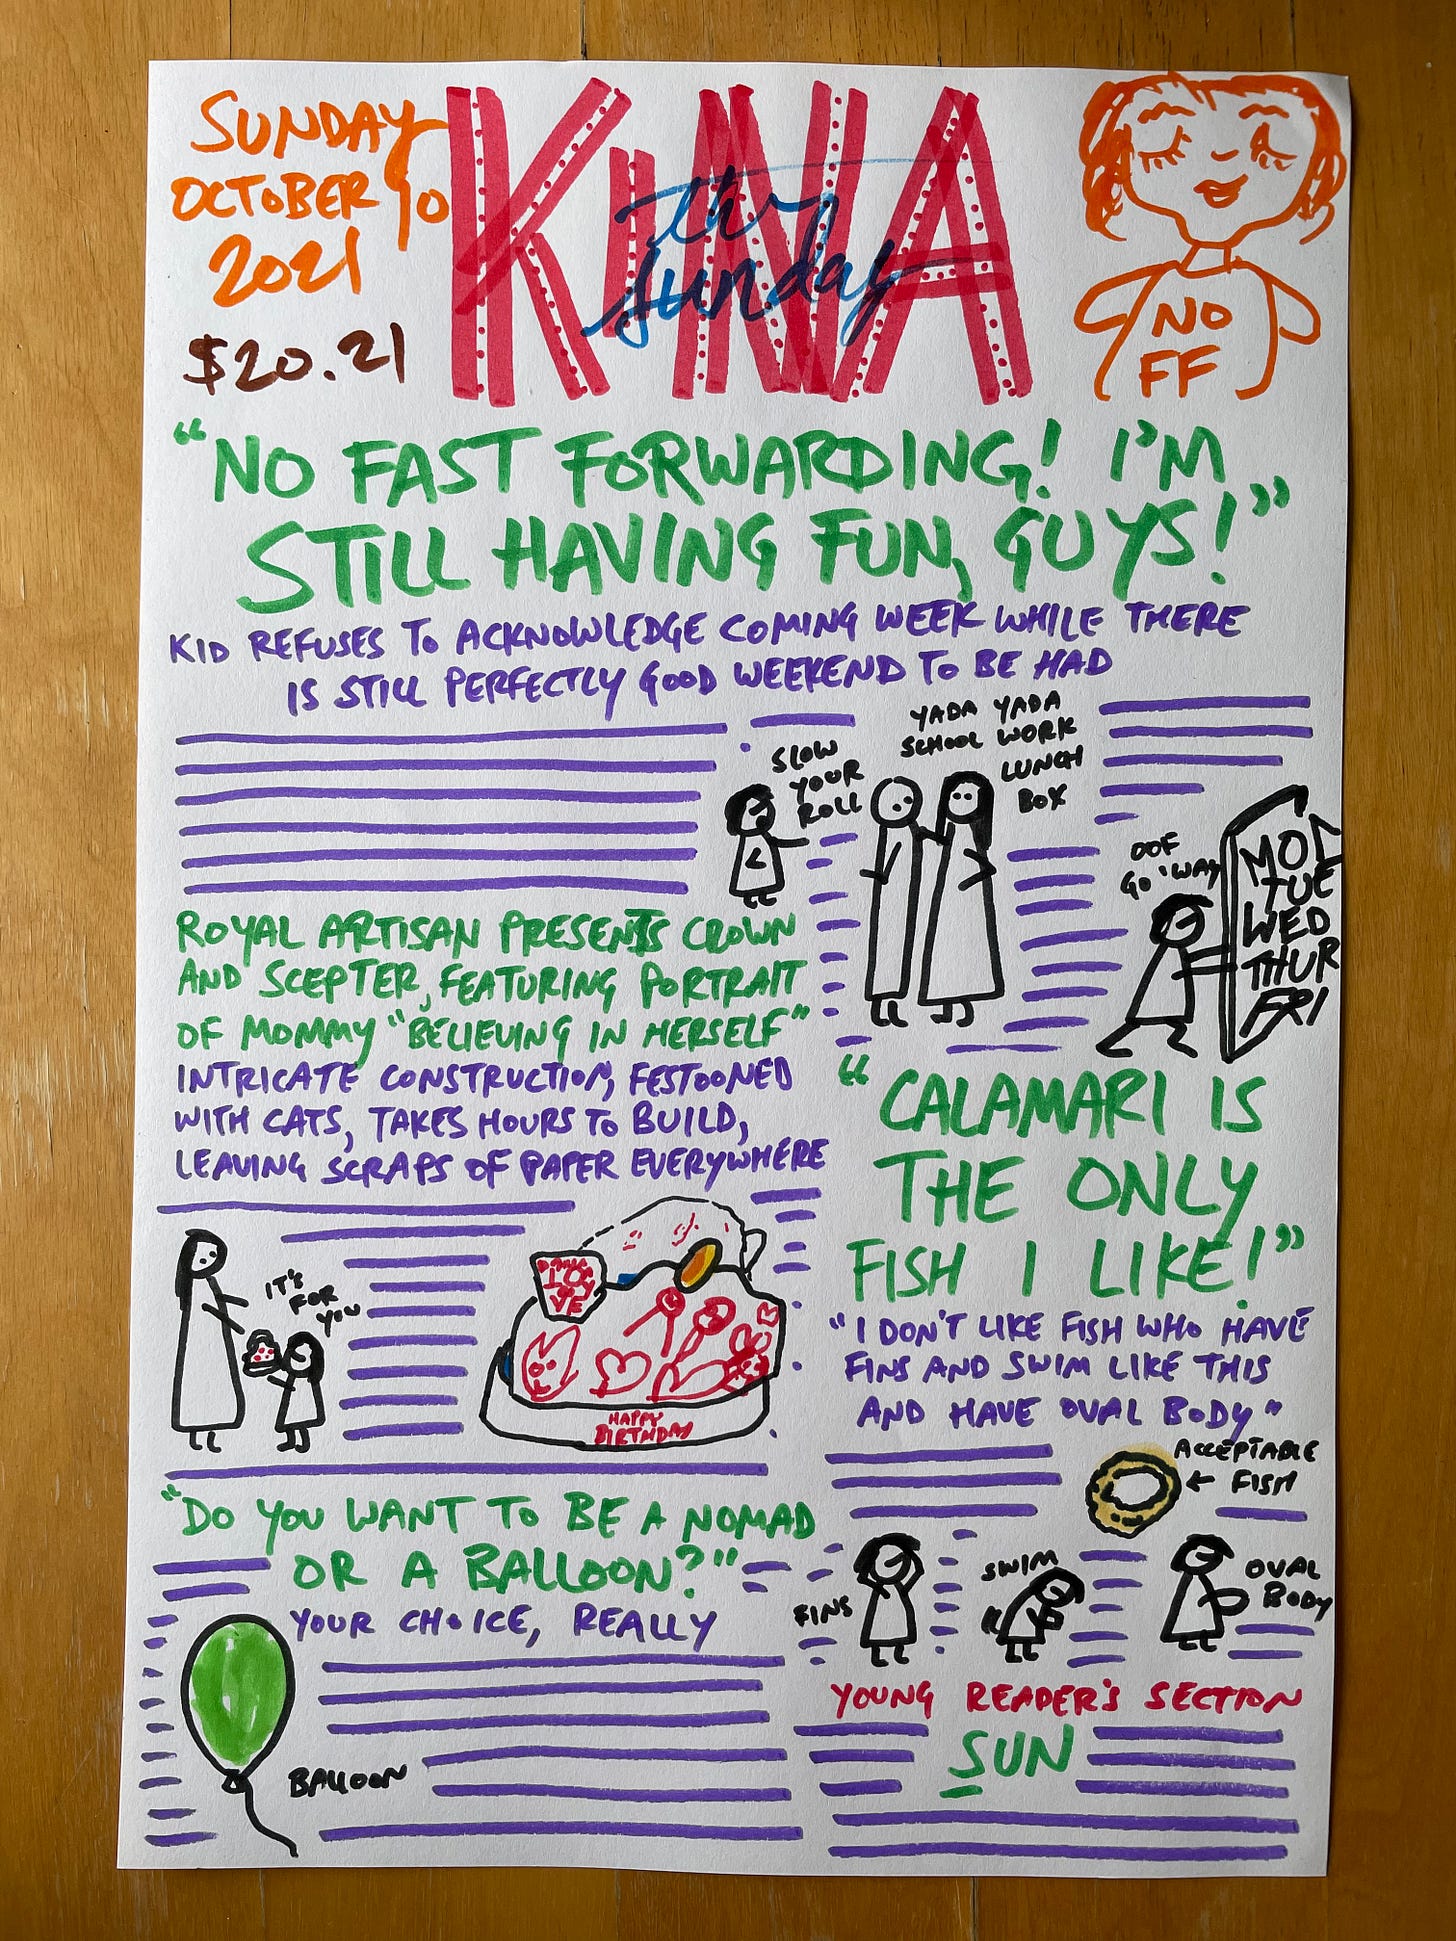 SUNDAY
OCTOBER 10
2021
$20.21
KINA
the
sunday
NO
FF
"NO FAST FORWARDING! I'M
STILL HAVING FUN, GUYS!"
KID REFUSES TO ACKNOWLEDGE COMING WEEK WHILE THERE
IS STILL PERFECTLY GOOD WEEKEND TO BE HAD
SLOW
YOUR
ROLL
YADA YADA
SCHOOL WORK
LUNCH
BOX
OOF
GO 'WAY
MON
TUE
WED
THUR
FRI
ROYAL ARTISAN PRESENTS CROWN
AND SCEPTER, FEATURING PORTRAIT
OF MOMMY "BELIEVING IN HERSELF"
INTRICATE CONSTRUCTION, FESTOONED
WITH CATS, TAKES HOURS TO BUILD,
LEAVING SCRAPS OF PAPER EVERYWHERE
IT'S
FOR
YOU
HAPPY
BIRTHDAY
"CALAMARI IS
THE ONLY
FISH I LIKE!"
"I DON'T LIKE FISH WHO HAVE
FINS AND SWIM LIKE THIS
AND HAVE OVAL BODY"
ACCEPTABLE
FISH
FINS
SWIM
OVAL
BODY
"DO YOU WANT TO BE A NOMAD
OR A BALLOON?"
YOUR CHOICE, REALLY
BALLOON
YOUNG READER'S SECTION
SUN